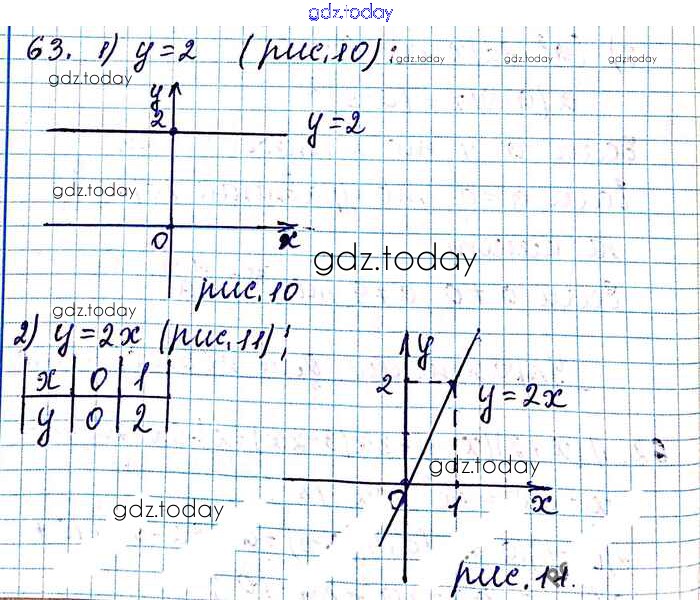 gdz.today
63. 1) y=2 (рис.10);
gdz.today gdz.today gdz.today
gdz.today
y
2
y=2
gdz.today
0 x
gdz.today
рис.10
gdz.today
2) y=2x (рис.11);
x 0 1
y 0 2
y
2
y=2x
gdz.today
0 1 x
gdz.today
рис.11.